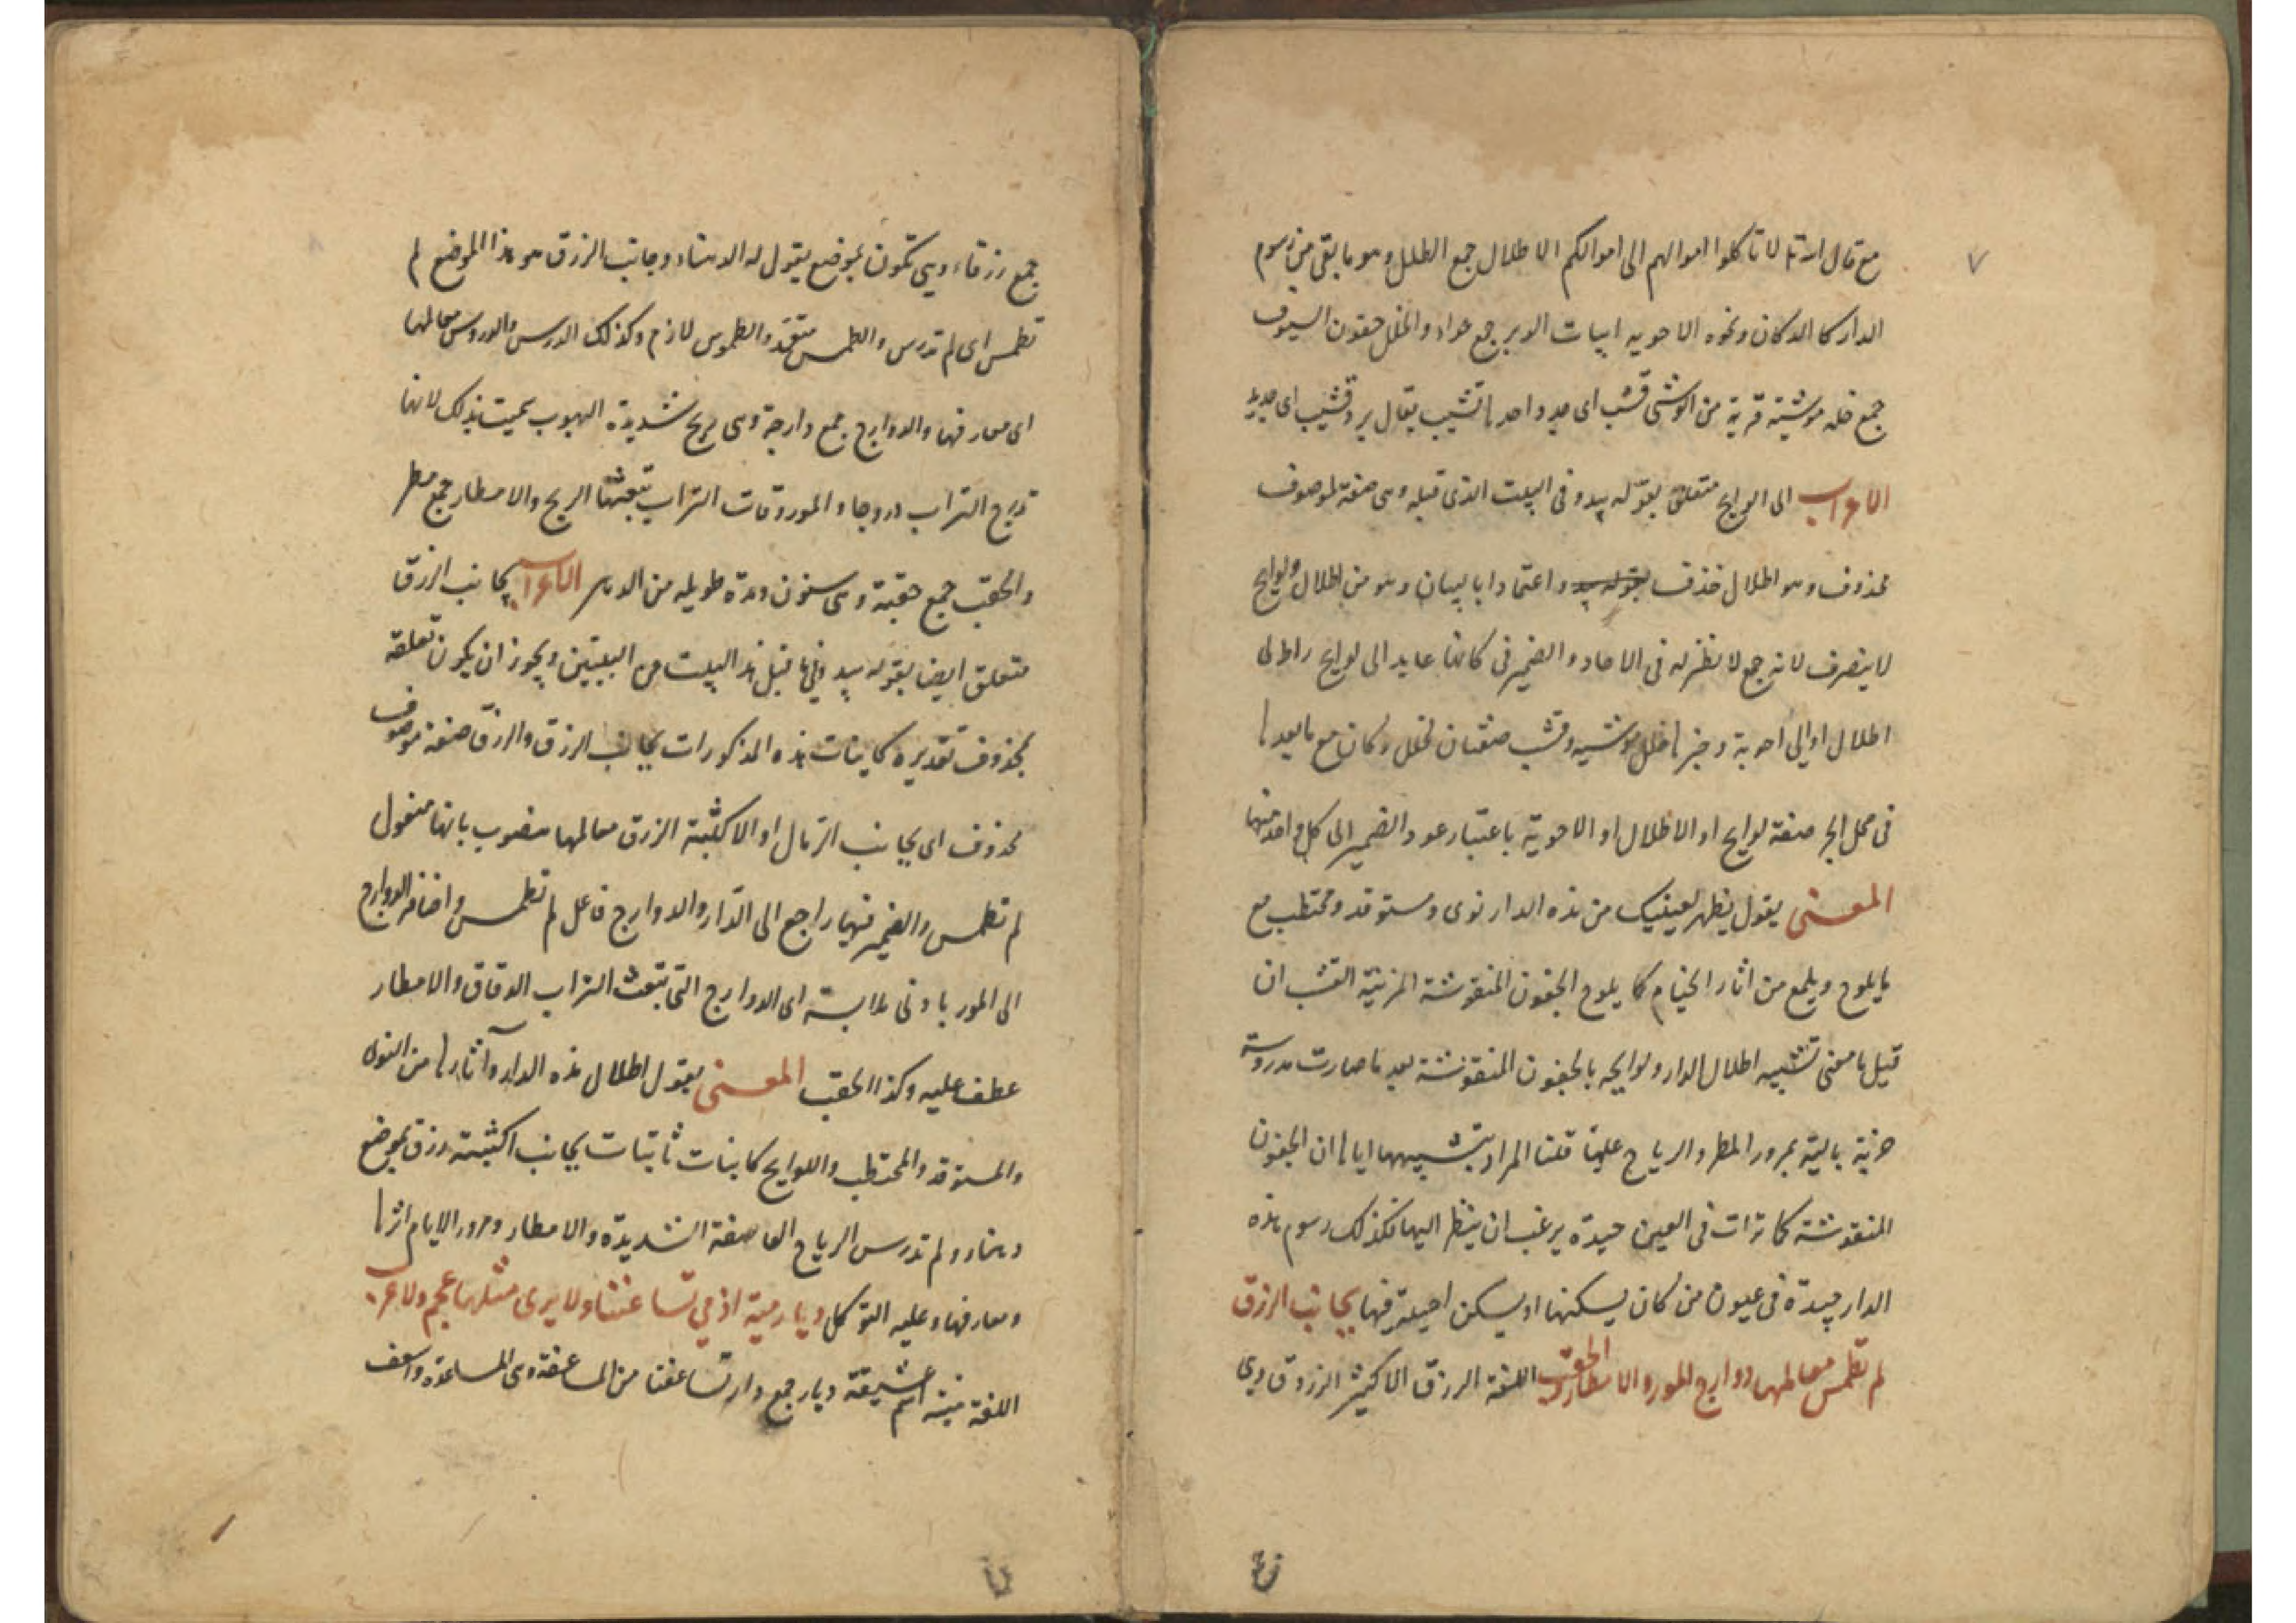 ٧
مع قال الله تعالى لا تاكلوا اموالهم الى اموالكم الاطلال جمع الطلل وهو ما بقى من رسوم
الدار كالدكان ونحوه الاحويه ابيات الوبر جمع حواء والخلل جفون السيوف
جمع خله موشيته قرية من الوشى قشب اى جدد واحدها قشيب يقال برد قشيب اى جديد
الاعراب الى لوايح متعلق بقوله يبدو فى البيت الذى قبله وهى صفة لموصوف
محذوف وهو اطلال فحذف واعتمادا بالبيان وهو من اطلال ولوايح
لا ينصرف لانه جمع لا نظير له فى الاحاد والضمير فى كانها عايد الى لوايح او الى
اطلال او الى احوية وخبرها خلل موشيه وقشب صفتان لخلل وكان مع ما بعدها
فى محل الجر صفة لوايح او الاطلال او الاحوية باعتبار عود الضمير الى كل واحد منها
المعنى يقول يظهر لعينيك من هذه الدار نوى ومستوقد ومحتطب مع
ما يلوح ويلمع من اثار الخيام كما يلوح الجفون المنقوشة المزينة القشب ان
قيل ما معنى تشبيه اطلال الدار ولوايحه بالجفون المنقوشة بعد ما صارت مدروسة
بالية بمرور المطر والرياح عليها قلنا المراد بتشبيهها اياها ان الجفون
المنقوشة كما تراث فى العين جيدة يرغب ان ينظر اليها فكذلك رسوم هذه
الدار جيدة فى عيون من كان يسكنها او يسكن احبته فيها بجانب الزرق
لم تطمس معالمها دوارج المور والامطار والحقب اللغة الزرق الاكثبة الزرق وهى
جمع زرقاء وهى تكون بموضع يقول له الدهناء وجانب الزرق هو هذا الموضع لم
تطمس اى لم تدرس والطمس متعد والطموس لازم وكذلك الدرس والدروس معالمها
اى معارفها والدوارج جمع دارجة وهى ريح شديدة الهبوب سميت بذلك لانها
تدرج التراب دروجا والمور دقات التراب تبعثها الريح والامطار جمع مطر
والحقب جمع حقبة وهى سنون ومدة طويله من الدهر الاعراب بجانب الزرق
متعلق ايضا بقوله يبدو فيما قبل هذا البيت من البيتين ويجوز ان يكون تعلقه
بمحذوف تقديره كاينات هذه المذكورات بجانب الزرق والزرق صفة موصوف
محذوف اى بجانب الرمال او الاكثبة الزرق معالمها منصوب بانها مفعول
لم تطمس والضمير فيها راجع الى الدار والدوارج فاعل لم تطمس واضافة الدوارج
الى المور بادنى ملابسة اى الدوارج التى تبعث التراب الدقاق والامطار
عطف عليه وكذا الحقب المعنى يقول اطلال هذه الدار وآثارها من النوى
والمستوقد والمحتطب واللوايح كاينات ثابتات بجانب اكثبة زرق بموضع
دهناء ولم تدرس الرياح العاصفة الشديدة والامطار ومرور الايام اثرها
ومعارفها وعليه التوكل ديار مية اذ مي تساعفنا ولا يرى مثلها عجم ولا عرب
اللغة مية اسم عشيقة ديار جمع دار تساعفنا من المساعفة وهى المساعدة واسعف